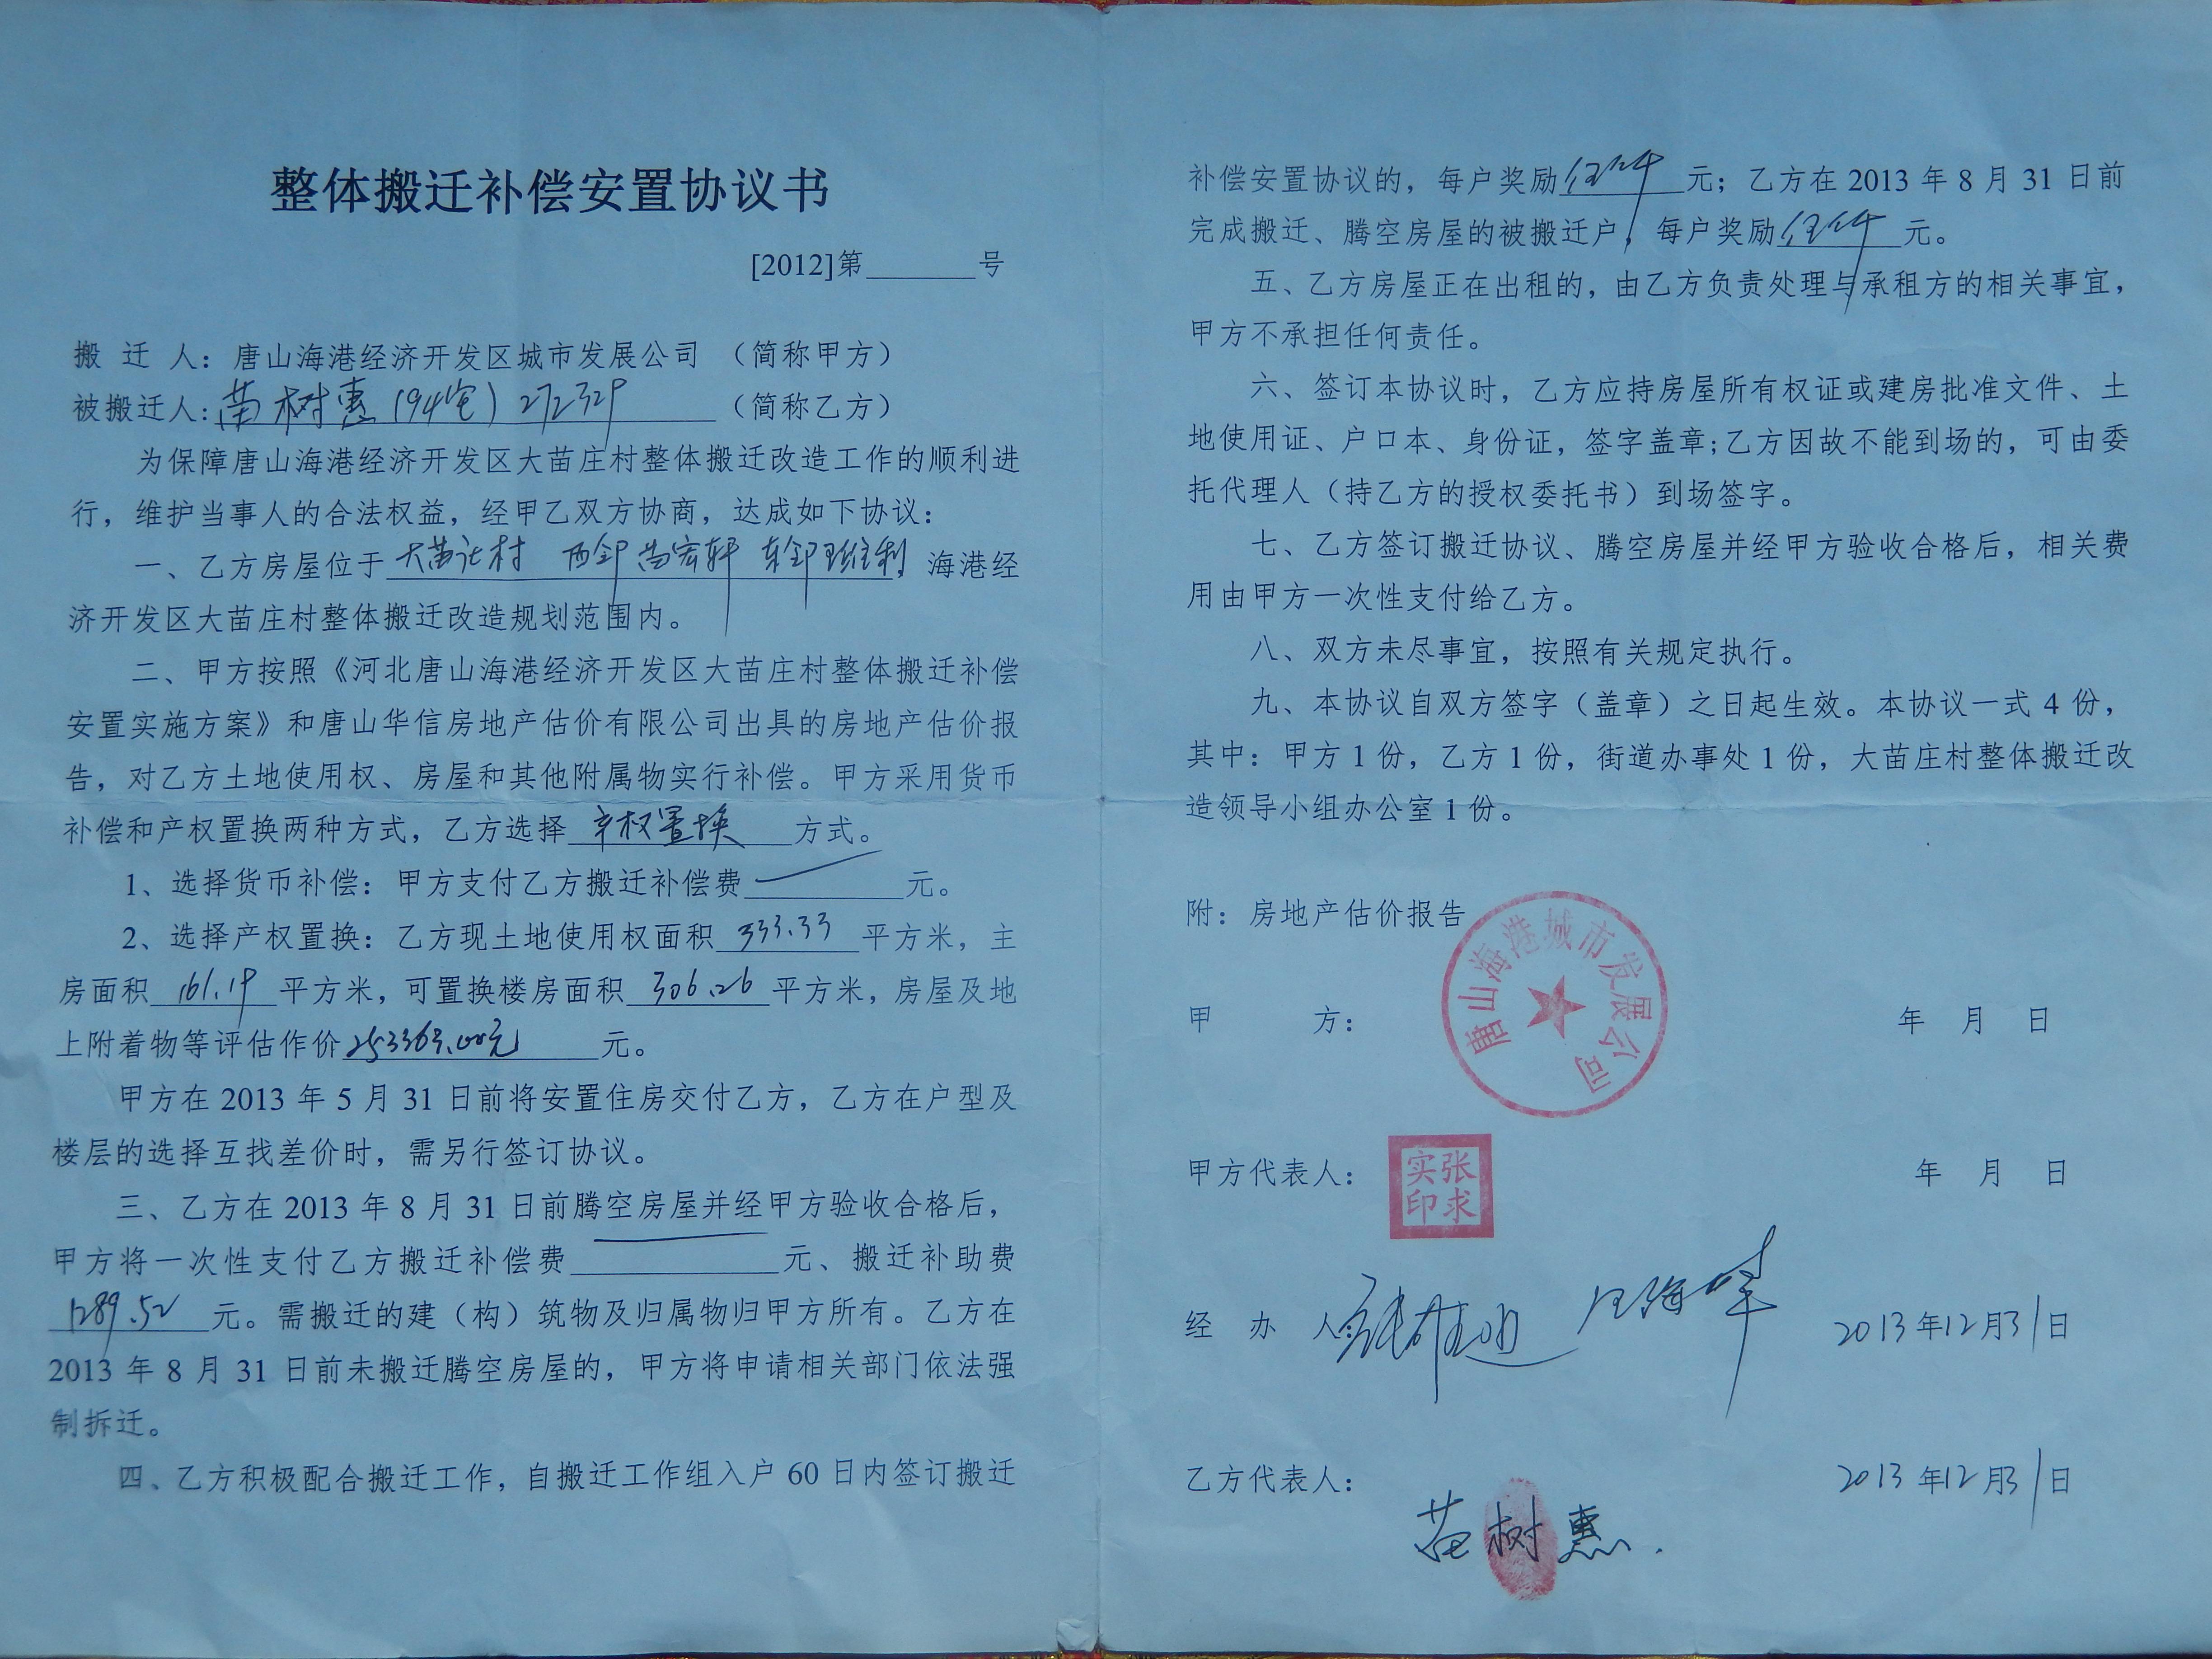 整体搬迁补偿安置协议书
[2012]第________号
搬 迁 人：唐山海港经济开发区城市发展公司 （简称甲方）
被搬迁人：苗树惠（94宅）272329 （简称乙方）
为保障唐山海港经济开发区大苗庄村整体搬迁改造工作的顺利进
行，维护当事人的合法权益，经甲乙双方协商，达成如下协议：
一、乙方房屋位于大苗庄村 西邻苗宏轩 东邻 ，海港经
济开发区大苗庄村整体搬迁改造规划范围内。
二、甲方按照《河北唐山海港经济开发区大苗庄村整体搬迁补偿
安置实施方案》和唐山华信房地产估价有限公司出具的房地产估价报
告，对乙方土地使用权、房屋和其他附属物实行补偿。甲方采用货币
补偿和产权置换两种方式，乙方选择 产权置换 方式。
1、选择货币补偿：甲方支付乙方搬迁补偿费________元。
2、选择产权置换：乙方现土地使用权面积 333.33 平方米，主
房面积 161.19 平方米，可置换楼房面积 306.26 平方米，房屋及地
上附着物等评估作价 253363.00元 元。
甲方在 2013 年 5 月 31 日前将安置住房交付乙方，乙方在户型及
楼层的选择互找差价时，需另行签订协议。
三、乙方在 2013 年 8 月 31 日前腾空房屋并经甲方验收合格后，
甲方将一次性支付乙方搬迁补偿费________元、搬迁补助费
1289.52 元。需搬迁的建（构）筑物及归属物归甲方所有。乙方在
2013 年 8 月 31 日前未搬迁腾空房屋的，甲方将申请相关部门依法强
制拆迁。
四、乙方积极配合搬迁工作，自搬迁工作组入户 60 日内签订搬迁
补偿安置协议的，每户奖励 伍仟 元；乙方在 2013 年 8 月 31 日前
完成搬迁、腾空房屋的被搬迁户，每户奖励 伍仟 元。
五、乙方房屋正在出租的，由乙方负责处理与承租方的相关事宜，
甲方不承担任何责任。
六、签订本协议时，乙方应持房屋所有权证或建房批准文件、土
地使用证、户口本、身份证，签字盖章;乙方因故不能到场的，可由委
托代理人（持乙方的授权委托书）到场签字。
七、乙方签订搬迁协议、腾空房屋并经甲方验收合格后，相关费
用由甲方一次性支付给乙方。
八、双方未尽事宜，按照有关规定执行。
九、本协议自双方签字（盖章）之日起生效。本协议一式 4 份，
其中：甲方 1 份，乙方 1 份，街道办事处 1 份，大苗庄村整体搬迁改
造领导小组办公室 1 份。
附：房地产估价报告
唐山海港城市发展公司
甲 方： 年 月 日
甲方代表人： 张求实印 年 月 日
经 办 人： 2013 年 12 月 31 日
乙方代表人： 2013 年 12 月 31 日
苗树惠